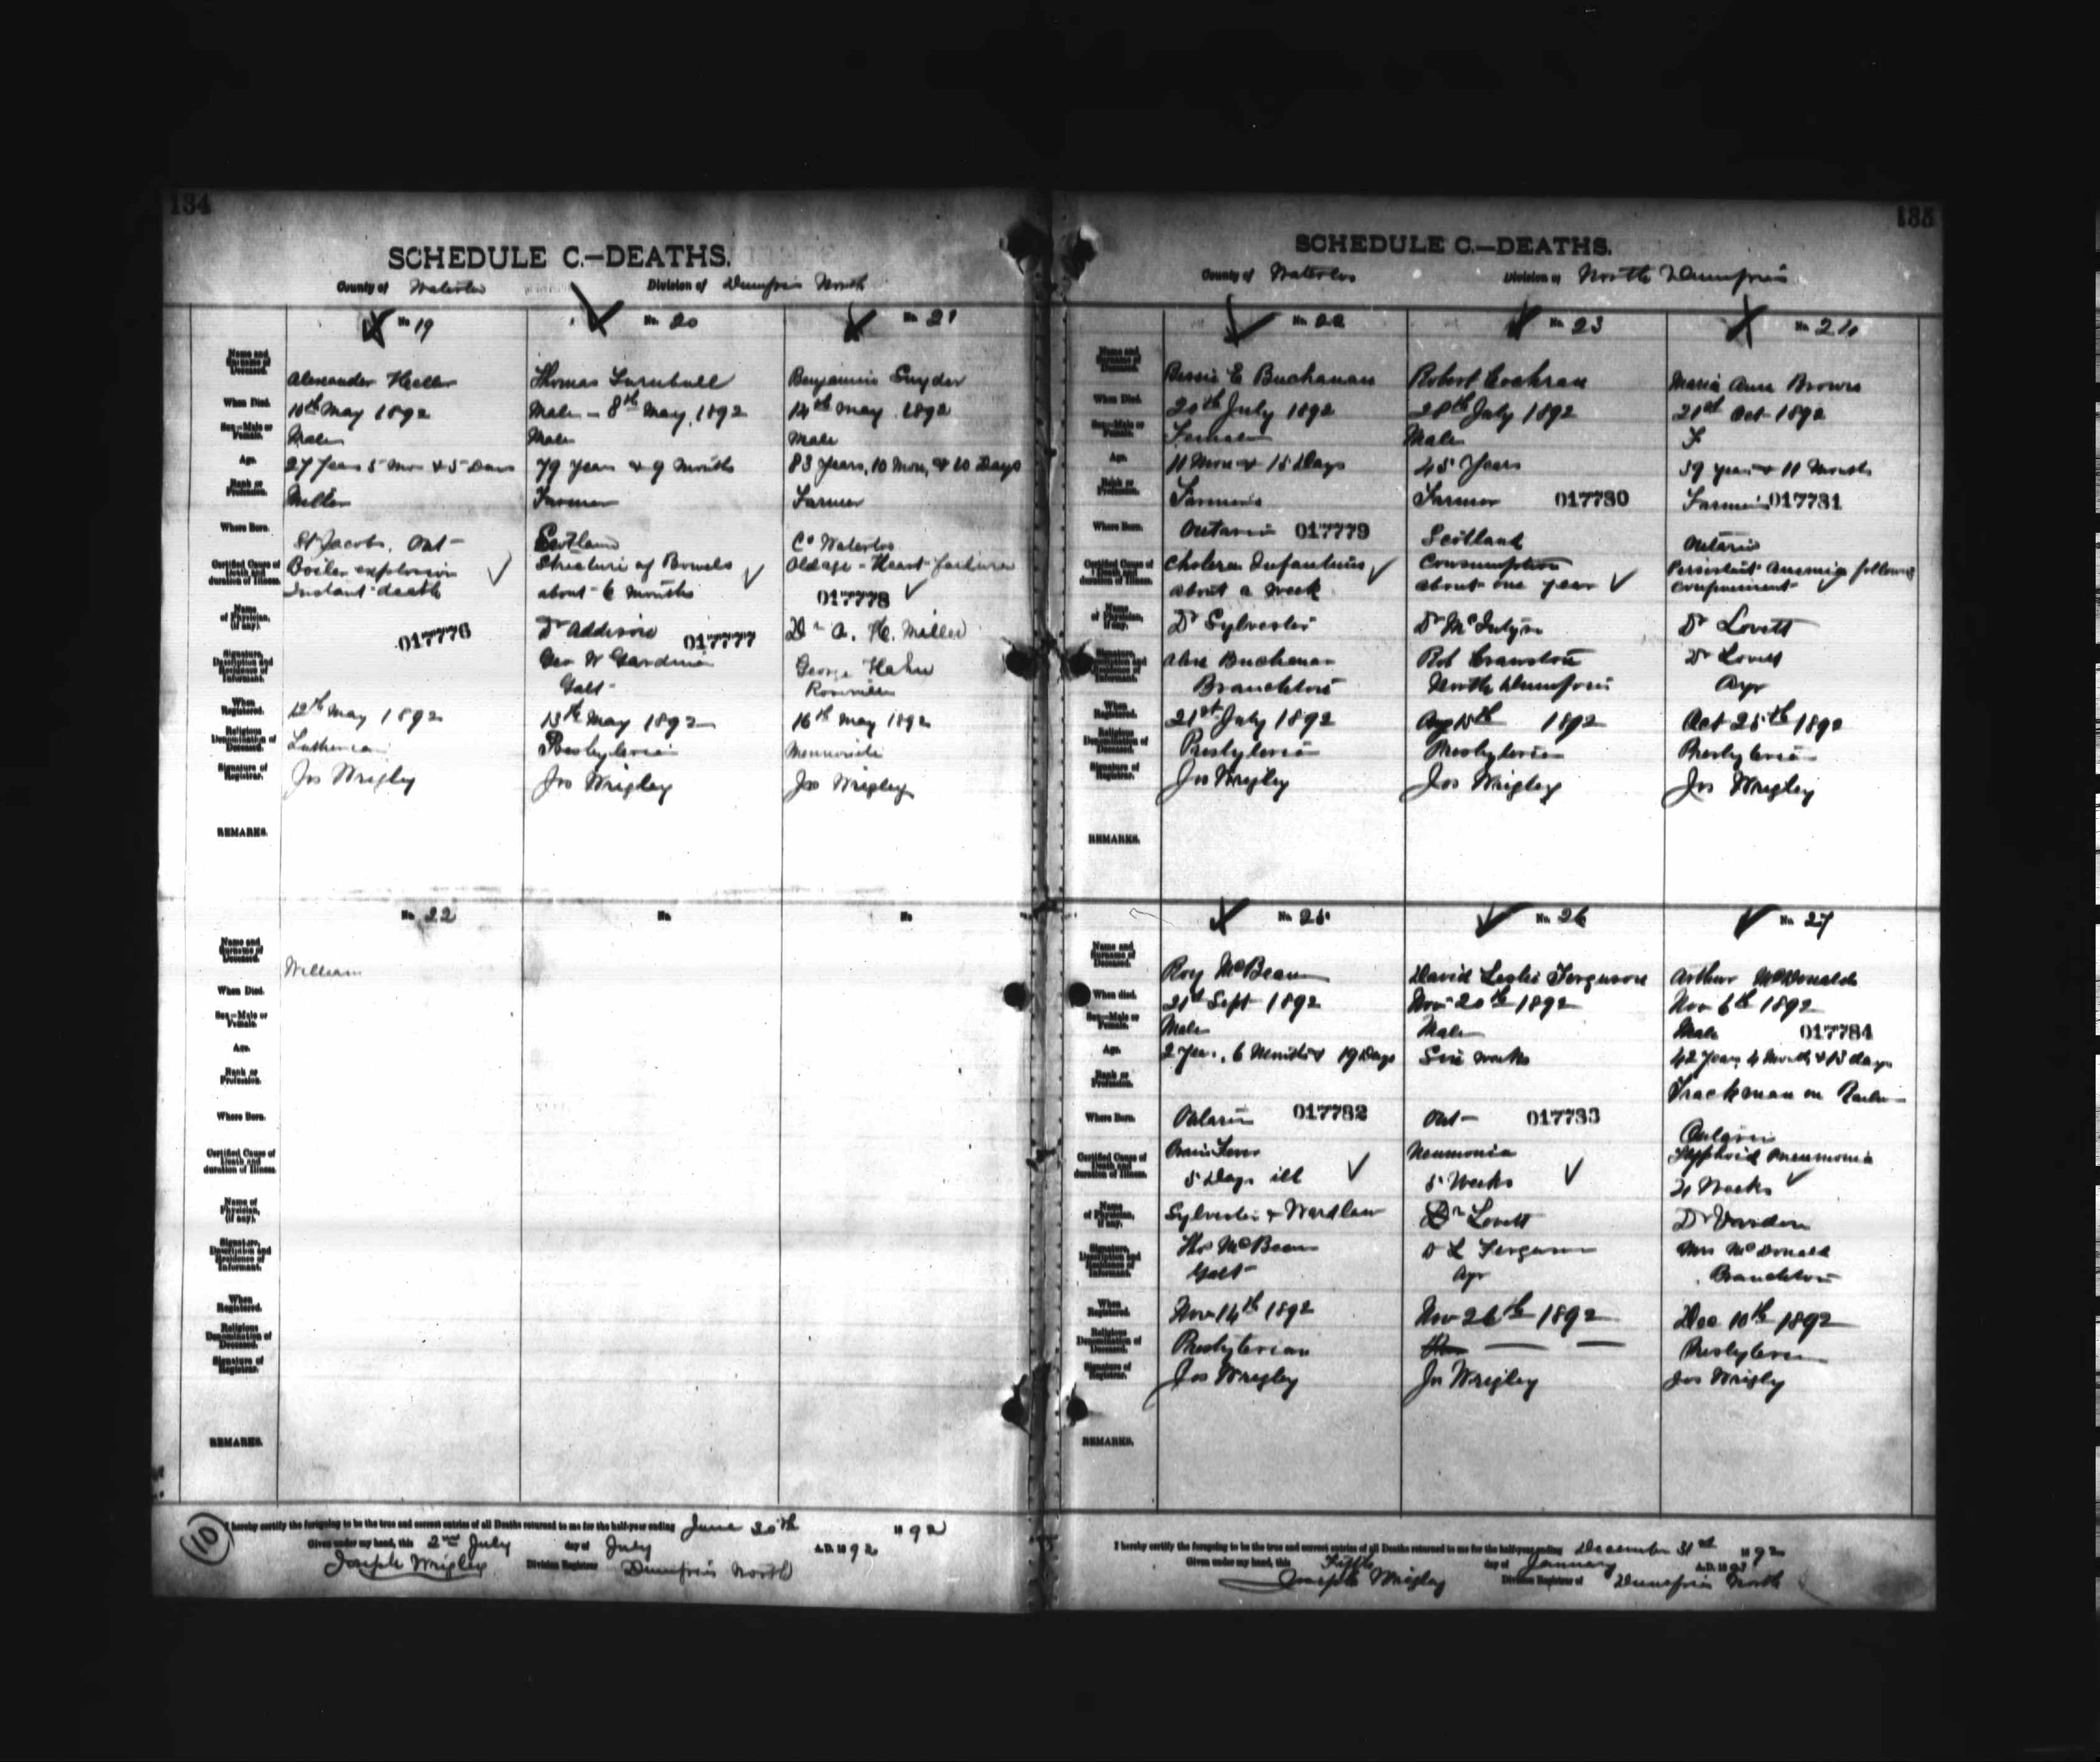 134
SCHEDULE C.—DEATHS.
County of Waterloo Division of Dumfries North
No 19
Name and Surname of Deceased. Alexander
When Died. 10th May 1892
Sex—Male or Female. Male
Age. 27 Years 5 Mon & 5 Days
Rank or Profession. Miller
Where Born. St Jacobs, Ont
Certified Cause of Death and duration of Illness. Boiler explosion
Instant death
Name of Physician, (if any). 017776
Signature, Description and Residence of Informant.
When Registered. 12th May 1892
Religious Denomination of Deceased. Lutheran
Signature of Registrar. Jos Wrigley
REMARKS.
No. 20
Thomas Turnbull
Male - 8th May, 1892
Male
79 Years & 9 Months
Farmer
Scotland
Stricture of Bowels
about 6 months
Dr Addison 017777
Geo W Gardiner
Galt
13th May 1892
Presbyterian
Jos Wrigley
No. 21
Benjamin Snyder
14th May 1892
Male
83 Years, 10 Mon, & 10 Days
Farmer
Co Waterloo
Oldage - Heart failure
017778
Dr A. H. Miller
George Hahn
Roseville
16th May 1892
Mennonite
Jos Wrigley
No. 22
Name and Surname of Deceased. William
When Died.
Sex—Male or Female.
Age.
Rank or Profession.
Where Born.
Certified Cause of Death and duration of Illness.
Name of Physician, (if any).
Signature, Description and Residence of Informant.
When Registered.
Religious Denomination of Deceased.
Signature of Registrar.
REMARKS.
No
No
10
I hereby certify the foregoing to be the true and correct entries of all Deaths returned to me for the half-year ending June 30th 1892
Given under my hand, this 2nd July day of July A.D. 1892
Joseph Wrigley Division Registrar Dumfries North
135
SCHEDULE C.—DEATHS.
County of Waterloo Division of North Dumfries
No. 22
Name and Surname of Deceased. Bessie E Buchanan
When Died. 20th July 1892
Sex—Male or Female. Female
Age. 11 Mon & 15 Days
Rank or Profession. Farmer's
Where Born. Ontario 017779
Certified Cause of Death and duration of Illness. Cholera Infantum
about a week
Name of Physician, if any. Dr Sylvester
Signature, Description and Residence of Informant. Buchanan
Branchton
When Registered. 21st July 1892
Religious Denomination of Deceased. Presbyterian
Signature of Registrar. Jos Wrigley
REMARKS.
No. 23
Robert Cochran
28th July 1892
Male
45 Years
Farmer 017780
Scotland
Consumption
about one year
Dr McIntyre
Rob
North Dumfries
Aug 15th 1892
Presbyterian
Jos Wrigley
No. 24
Maria Ann Brown
21st Oct 1892
F
39 years & 11 Months
Farmer's 017781
Ontario
Persistent Anemia following
confinement
Dr Lovett
Dr Lovett
Ayr
Oct 25th 1892
Presbyterian
Jos Wrigley
No. 25
Name and Surname of Deceased. Roy McBean
When died. 21st Sept 1892
Sex—Male or Female. Male
Age. 2 Years, 6 Months & 19 Days
Rank or Profession.
Where Born. Ontario 017782
Certified Cause of Death and duration of Illness. Brain Fever
5 Days ill
Name of Physician, if any. Sylvester & Wardlaw
Signature, Description and Residence of Informant. Thos McBean
Galt
When Registered. Nov 14th 1892
Religious Denomination of Deceased. Presbyterian
Signature of Registrar. Jos Wrigley
REMARKS.
No. 26
David Leslie Ferguson
Nov 20th 1892
Male
Six weeks
Ont 017783
Neumonia
5 Weeks
Dr Lovett
D L Ferguson
Ayr
Nov 26th 1892
Jos Wrigley
No. 27
Arthur McDonald
Nov 6th 1892
Male 017784
42 Years, 4 Months & 13 days
Trackman on
Ontario
Typhoid Pneumonia
Weeks
Dr Vardon
Mrs McDonald
Branchton
Dec 10th 1892
Presbyterian
Jos Wrigley
I hereby certify the foregoing to be the true and correct entries of all Deaths returned to me for the half-year ending December 31st 1892
Given under my hand, this Fifth day of January A.D. 1893
Joseph Wrigley Division Registrar of Dumfries North